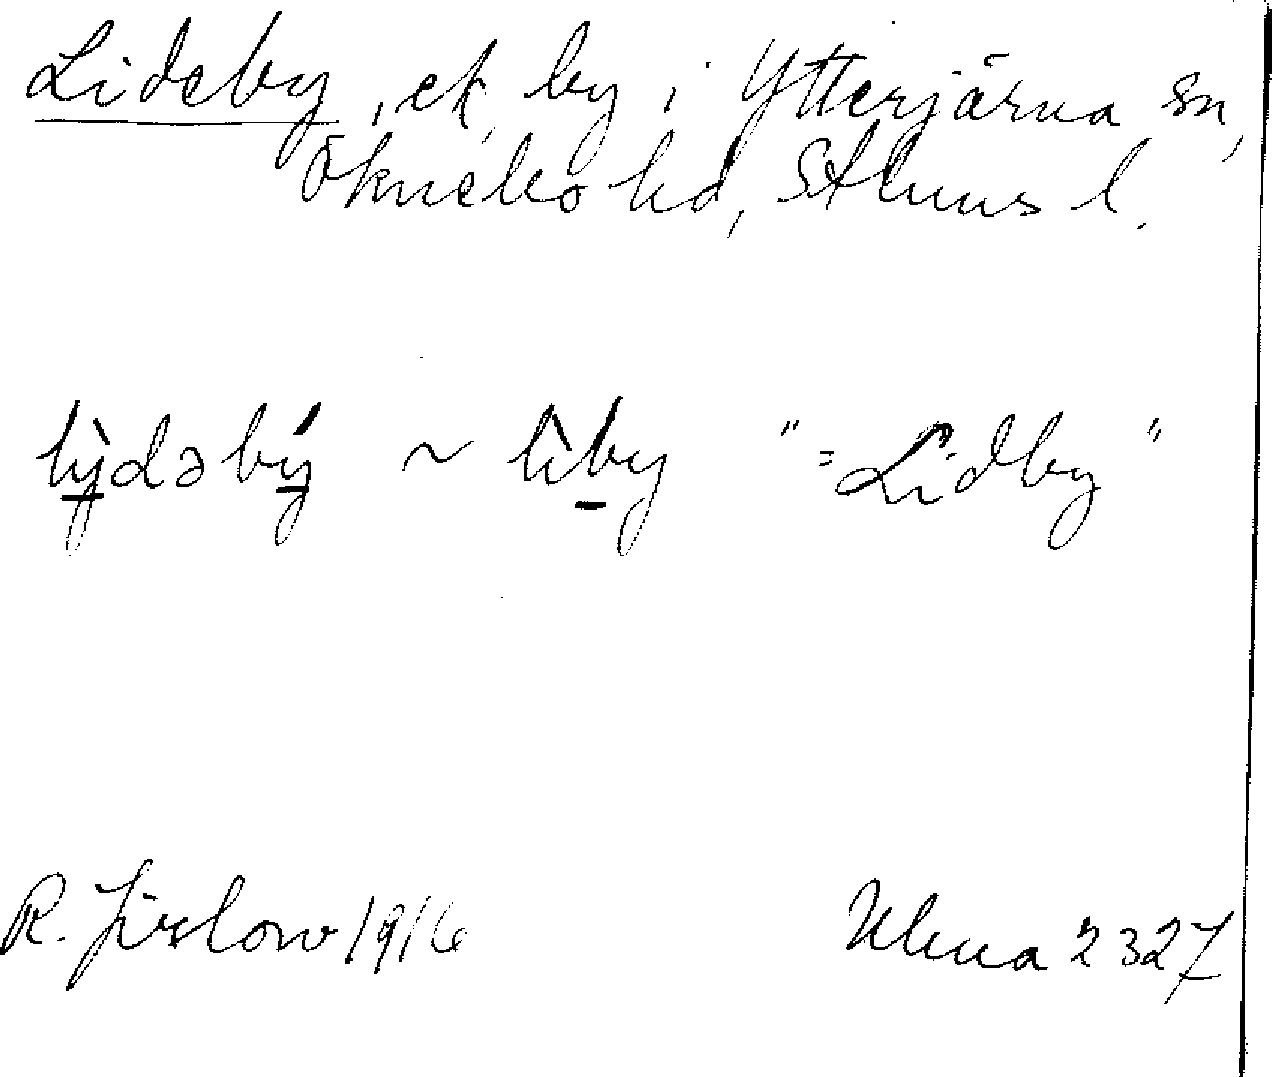 Lideby, ek, by i Ytterjärna sn,
Öknebo hd, Sthms l.
lỳdəbý ~ lìby "=Lidby"
R. Jirlow 1916 Ulma 2327